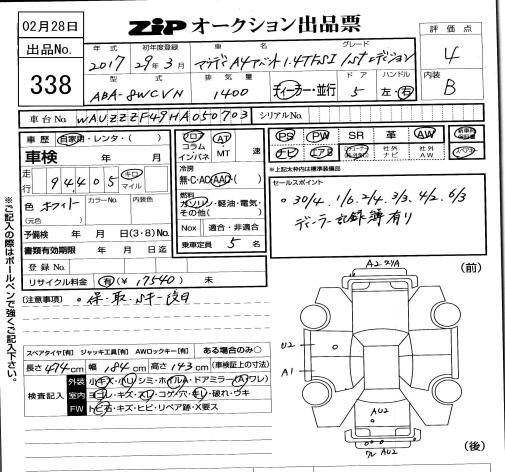 02月28日
ZIP オークション出品票
出品No.
338
評価点
4
内装
B
年式 初年度登録 車名 グレード
2017 29年3月 アウディA4アバント1.4TFSI 1stエディション
型式 排気量 ドア ハンドル
ABA-8WCVN 1400 ディーラー・並行 5 左・右
車台No. WAUZZZF49HA050703 シリアルNo.
車歴 自家用・レンタ・( )
車検 年 月
走行 94405 キロ マイル
色 ホワイト カラーNo. 内装色
(元色)
予備検 年 月 日(3・8)No.
書類有効期限 年 月 日迄
登録No.
リサイクル料金 有(¥ 17540) 未
フロア コラム インパネ AT・MT 速
冷房
無・C・AC・AAC( )
燃料
ガソリン・軽油・電気・その他( )
Nox 適合・非適合
乗車定員 5 名
PS PW SR 革 AW 新車時保証書
ナビ エアB 社外ナビ 社外AW スペアキー
※上記太枠内は標準装備品
セールスポイント
。30/4. 1/6. 2/4. 3/3. 4/2. 6/3
ディーラー記録簿有り
(注意事項)
。保・取・Sキー・後日
※ご記入の際はボールペンで強くご記入下さい。
スペアタイヤ[有] ジャッキ工具[有] AWロックキー[有] ある場合のみ○
長さ 474cm 幅 184cm 高さ 143cm (車検証上の寸法)
検査記入
外装 小キズ・小凹・シミ・ホイルA・ドアミラー(A・ワレ)
室内 ヨゴレ・キズ・スレ・コゲ・穴・キレ・破れ・ウキ
FW トビ石・キズ・ヒビ・リペア跡・X要ス
(前)
A2
U2
A1
AU2
AU2
(後)